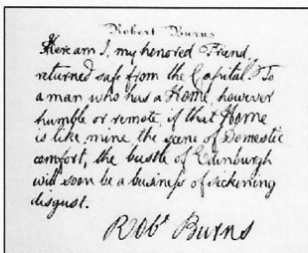 Robert Burns
Here am I, my honored Friend,
returned safe from the Capital. To
a man who has a Home, however
humble or remote, if that Home
is like mine the scene of Domestic
comfort, the bustle of Edinburgh
will soon be a business of sickening
disgust.
Robt Burns